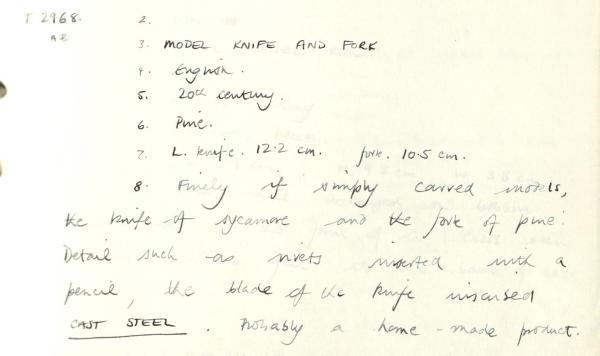 T 2968. 2.
A B 3. MODEL KNIFE AND FORK
4. English.
5. 20th century.
6. Pine.
7. L. knife. 12.2 cm. fork. 10.5 cm.
8. Finely if simply carved models,
the knife of sycamore and the fork of pine.
Detail such as rivets inserted with a
pencil, the blade of the knife incised
CAST STEEL. Probably a home-made product.